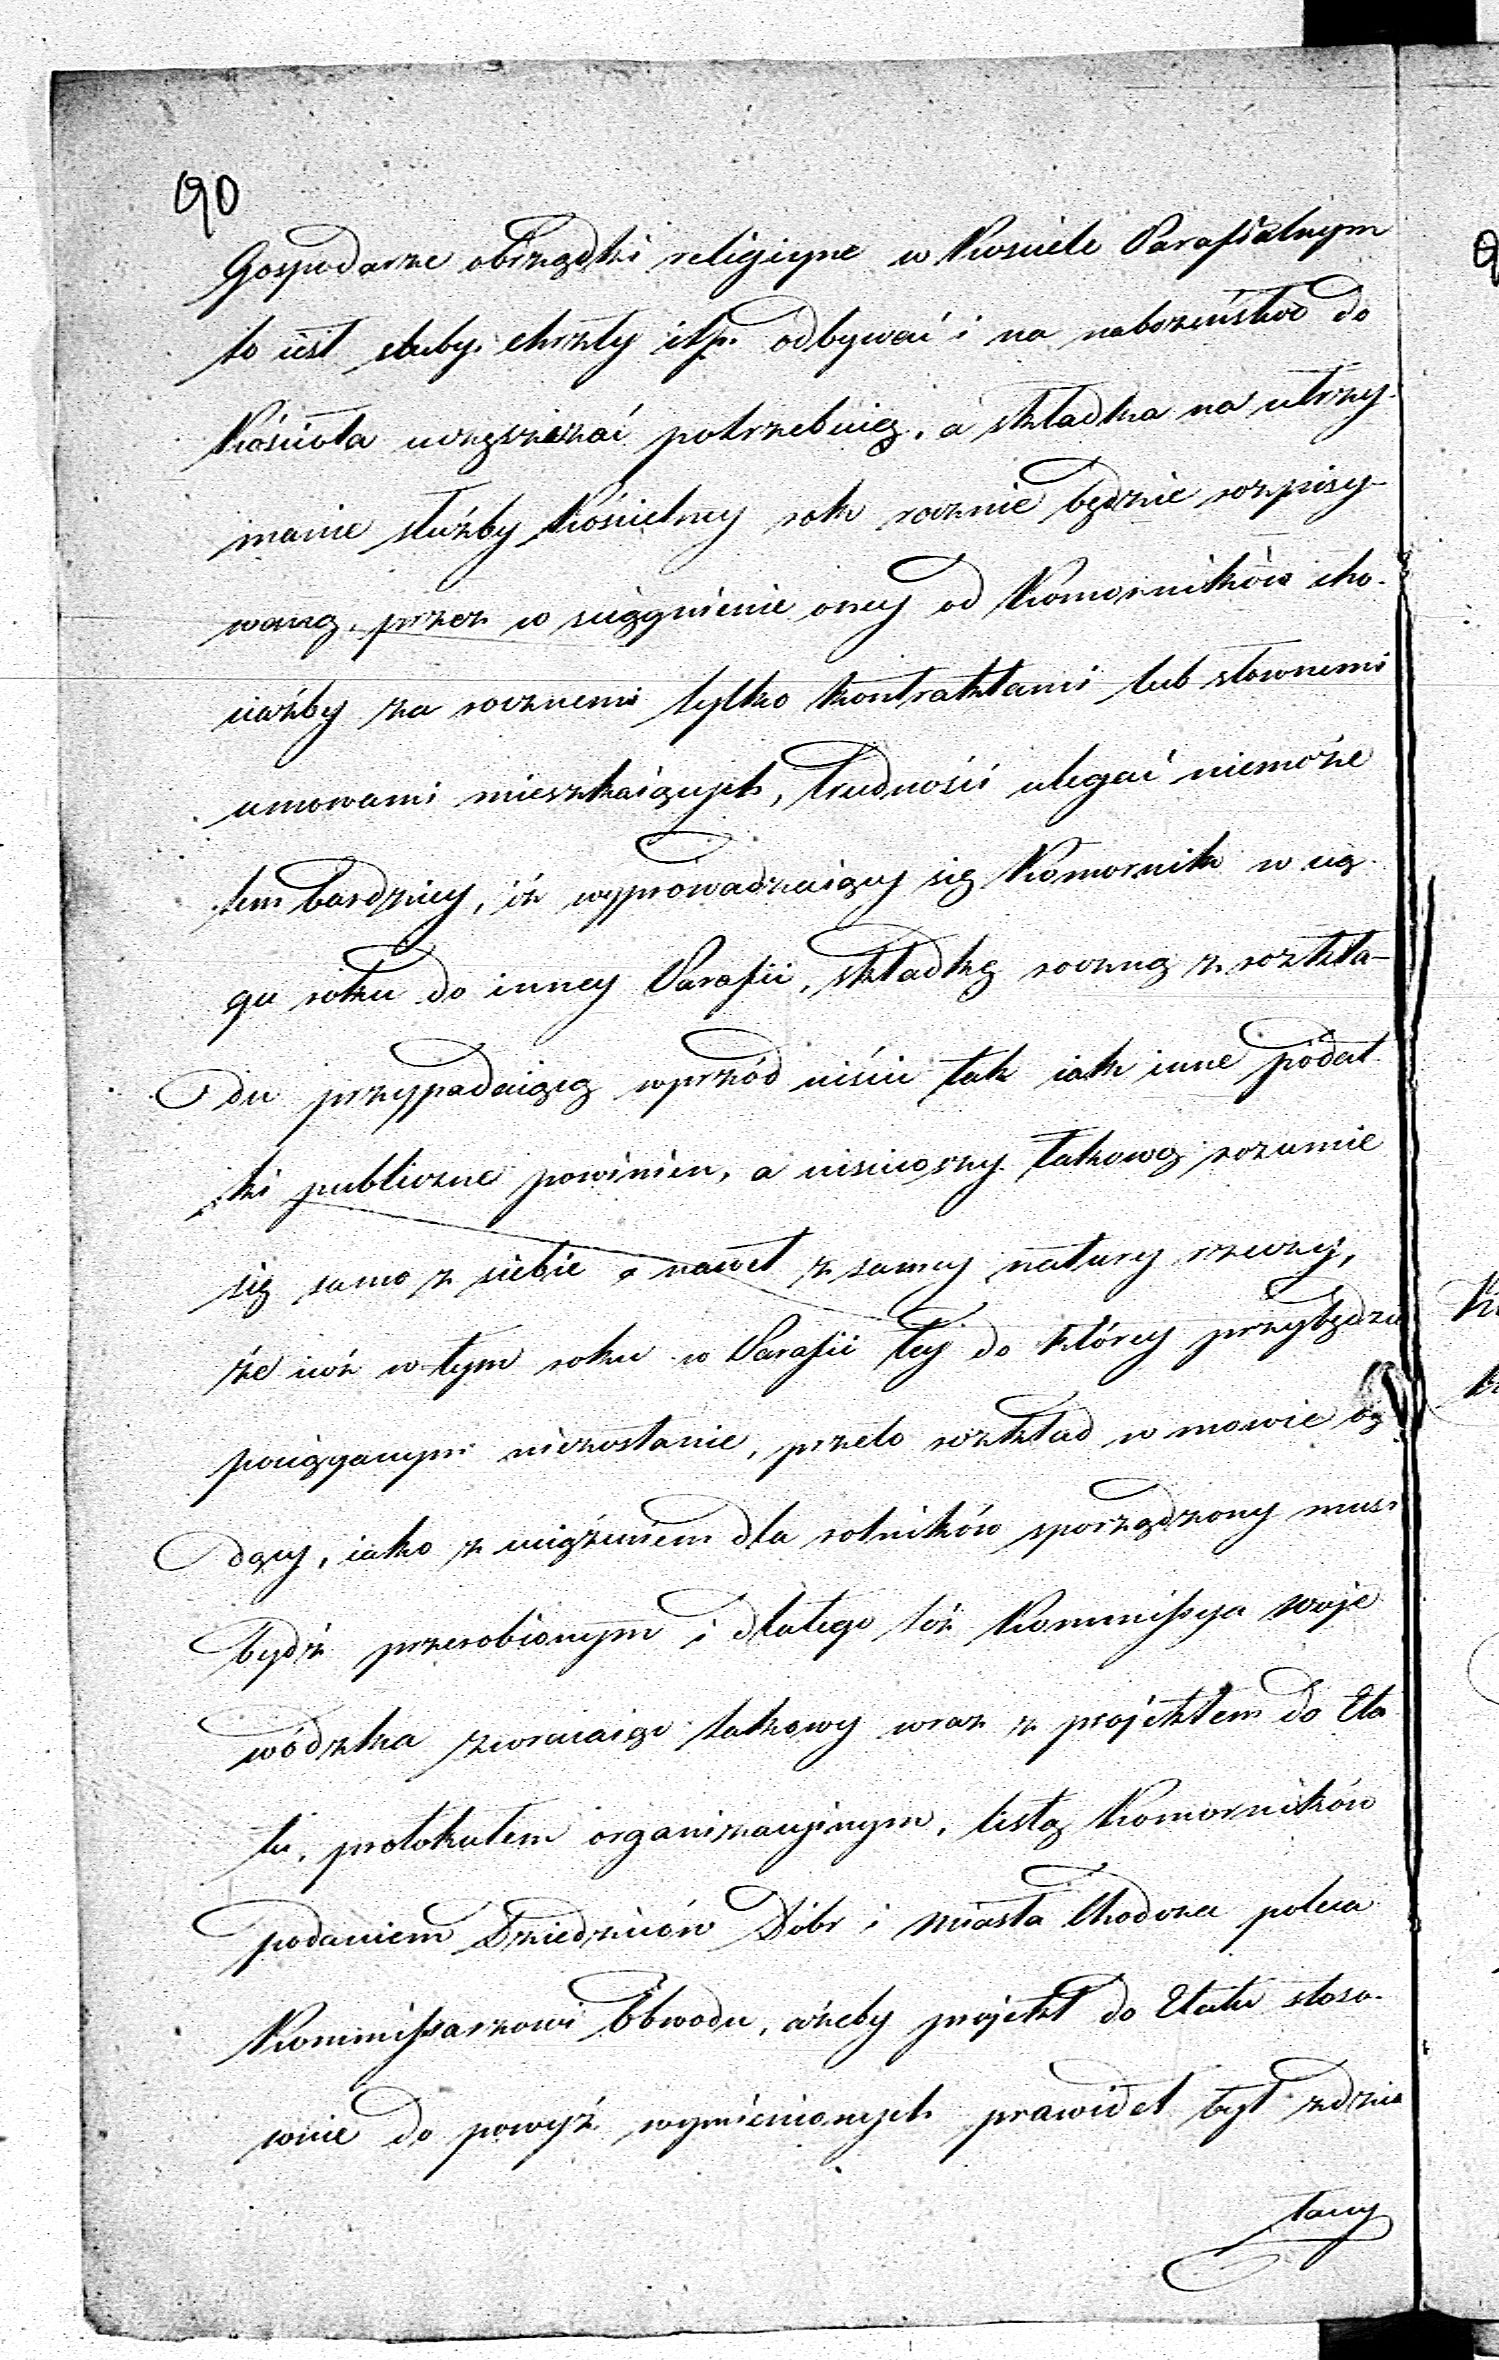 90
Gospodarze obrzędki religiyne w Kosciele Parafialnym
to iest sluby, chrzty itp. odbywać i na nabożeństwo do
Kościoła uczęszczać potrzebuią, a składka na utrzy-
manie służby Kościelney rok rocznie będzie rozpisy-
waną, przez w ściągnienie oney od Komorników cho-
ciażby za rocznemi tylko kontraktami lub słownemi
umowami mieszkaiących, trudności ulegać niemoże
tem bardziey, iż wyprowadzaiący się Komornik w cią-
gu roku do inney Parafii, składkę roczną z rozkła-
du przypadaiącą wprzód uiścić tak iak inne podat-
ki publiczne powinien, a uisciwszy takową rozumie
się samo z siebie a nawet z samey natury rzeczy,
że iuż w tym roku w Parafii tey do którey przybędzie
pociąganym niezostanie, przeto rozkład w mowie bę-
dący, iako z uciążeniem dla rolników sporządzony musi
bydź przerobionym i dlatego też Kommissya Woje
wódzka zwracaiąc takowy wraz z projektem do Eta
tu, protokułem organizacyinym, listą Komorników
podaniem Dziedziców Dóbr i Miasta Chodcza poleca
Kommissarzowi Obwodu, ażeby projekt do Etatu stoso-
wnie do powyż wymienionych prawideł był zdzia
łany